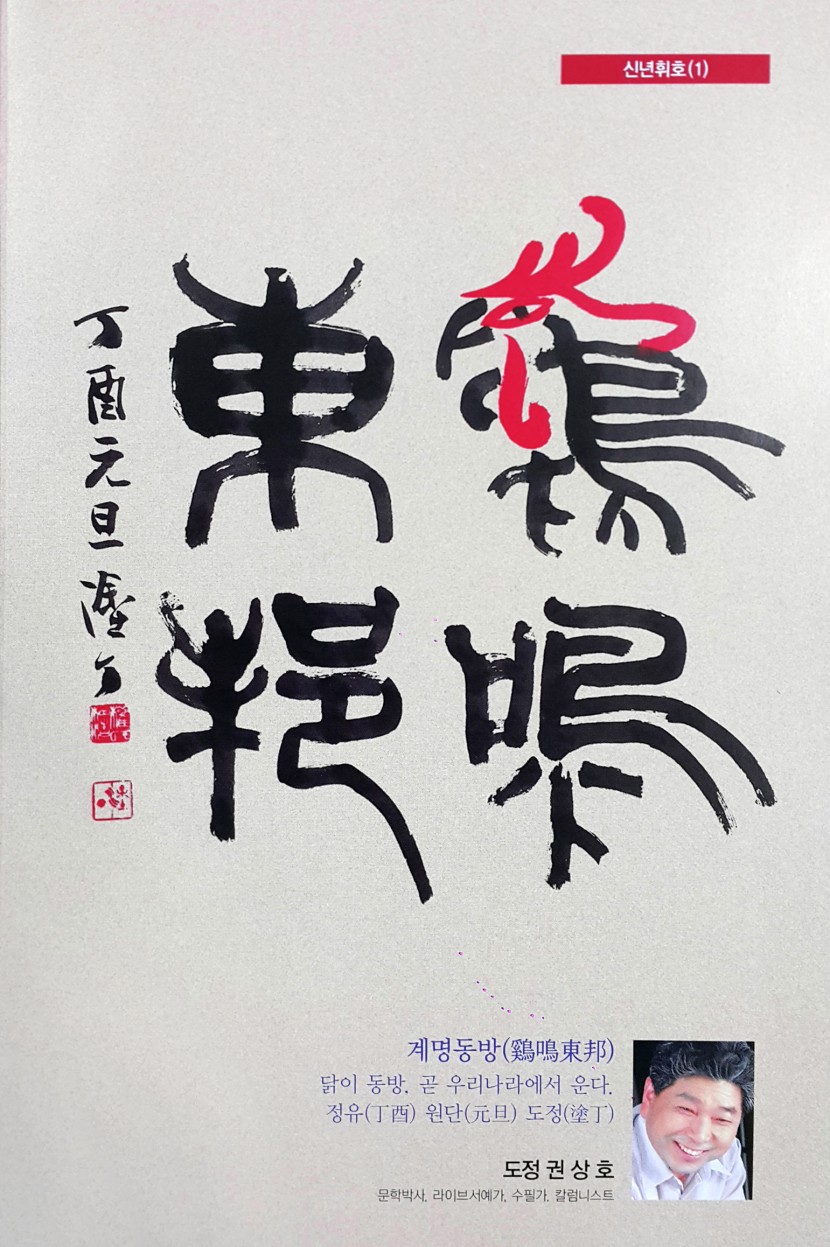 신년휘호(1)
鷄鳴
東邦
丁酉元旦塗丁
계명동방(鷄鳴東邦)
닭이 동방, 곧 우리나라에서 운다.
정유(丁酉) 원단(元旦) 도정(塗丁)
도정 권상호
문학박사, 라이브서예가, 수필가, 칼럼니스트